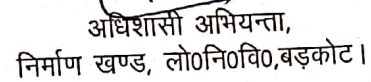 अधिशासी अभियन्ता,
निर्माण खण्ड, लो0नि0वि0,बड़कोट।